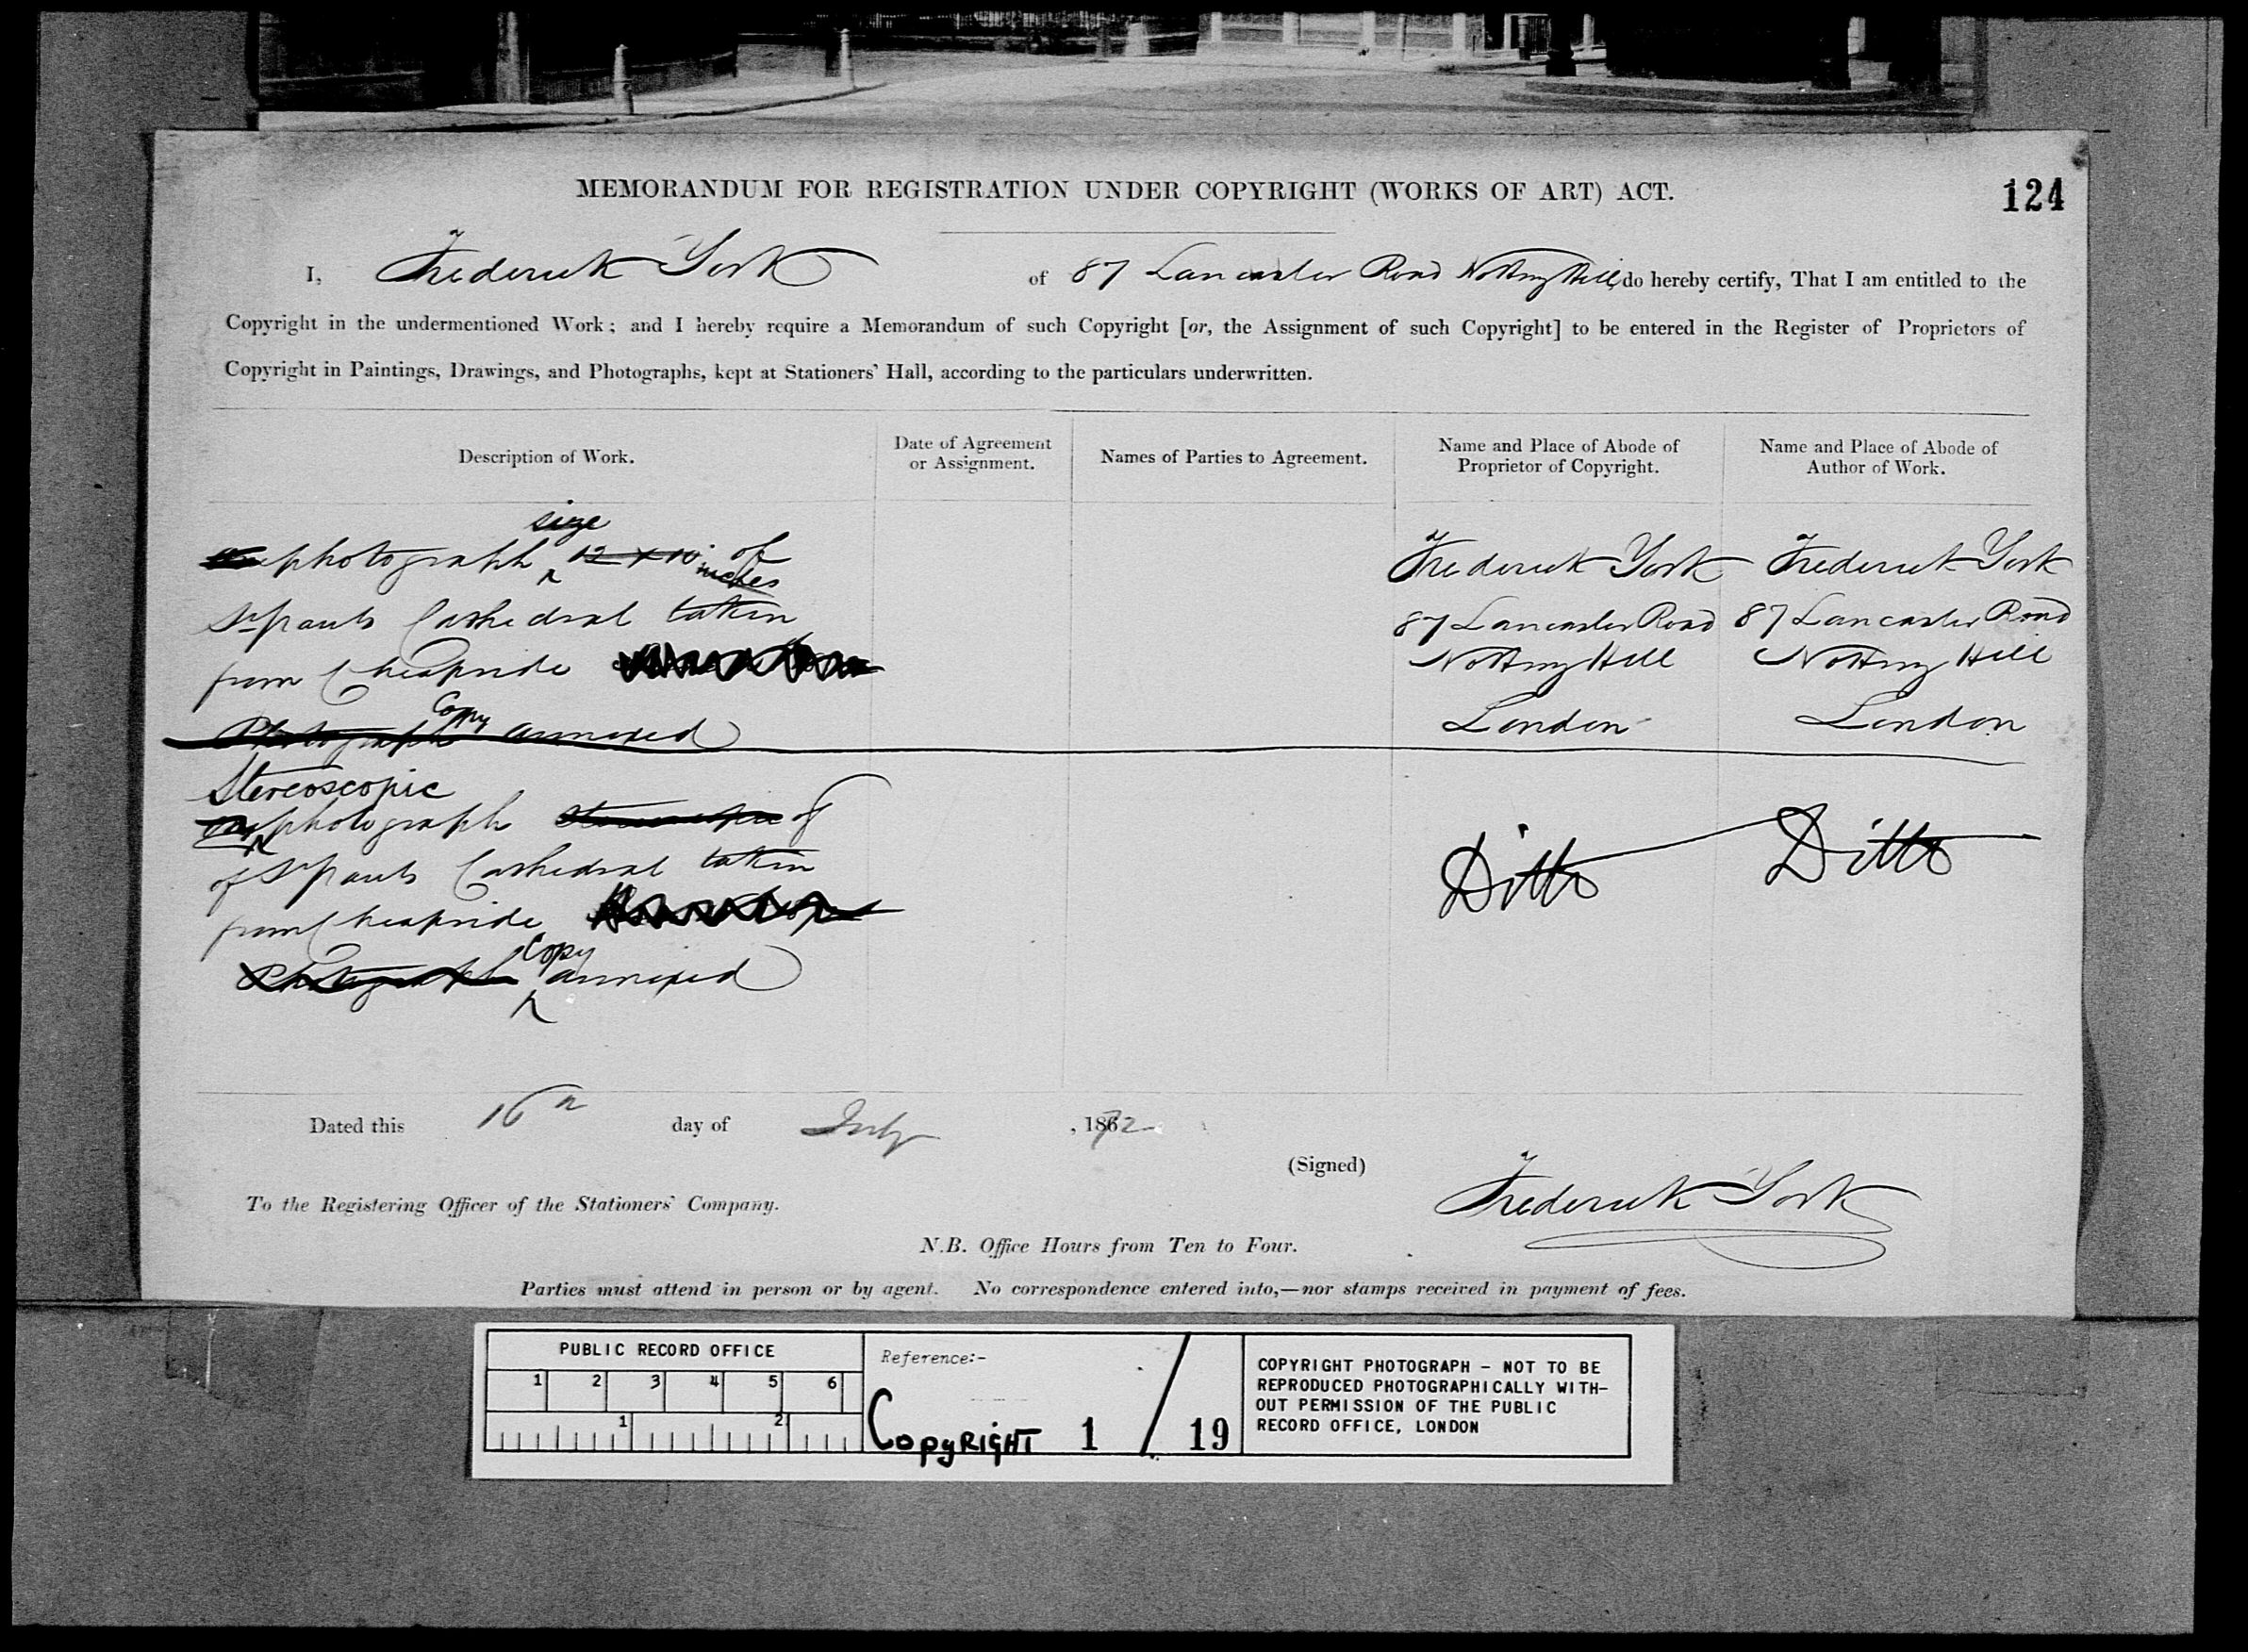 MEMORANDUM FOR REGISTRATION UNDER COPYRIGHT (WORKS OF ART) ACT.
124
I, Frederick York of 87 Lancaster Road Notting Hill, do hereby certify, That I am entitled to the
Copyright in the undermentioned Work; and I hereby require a Memorandum of such Copyright [or, the Assignment of such Copyright] to be entered in the Register of Proprietors of
Copyright in Paintings, Drawings, and Photographs, kept at Stationers' Hall, according to the particulars underwritten.
Description of Work.
Date of Agreement
or Assignment.
Names of Parties to Agreement.
Name and Place of Abode of
Proprietor of Copyright.
Name and Place of Abode of
Author of Work.
size
photograph 12 x 10 of
inches
St Pauls Cathedral taken
from Cheapside
Copy
Photograph annexed
Frederick York
87 Lancaster Road
Notting Hill
London
Frederick York
87 Lancaster Road
Notting Hill
London
Stereoscopic
photograph Stereoscopic of
of St Pauls Cathedral taken
from Cheapside
Copy
Photograph annexed
Ditto
Ditto
Dated this 16th day of July, 1872
(Signed)
Frederick York
To the Registering Officer of the Stationers' Company.
N.B. Office Hours from Ten to Four.
Parties must attend in person or by agent. No correspondence entered into,—nor stamps received in payment of fees.
PUBLIC RECORD OFFICE
1 2 3 4 5 6
1 2
Reference:-
COPYRIGHT 1 / 19
COPYRIGHT PHOTOGRAPH - NOT TO BE
REPRODUCED PHOTOGRAPHICALLY WITH-
OUT PERMISSION OF THE PUBLIC
RECORD OFFICE, LONDON